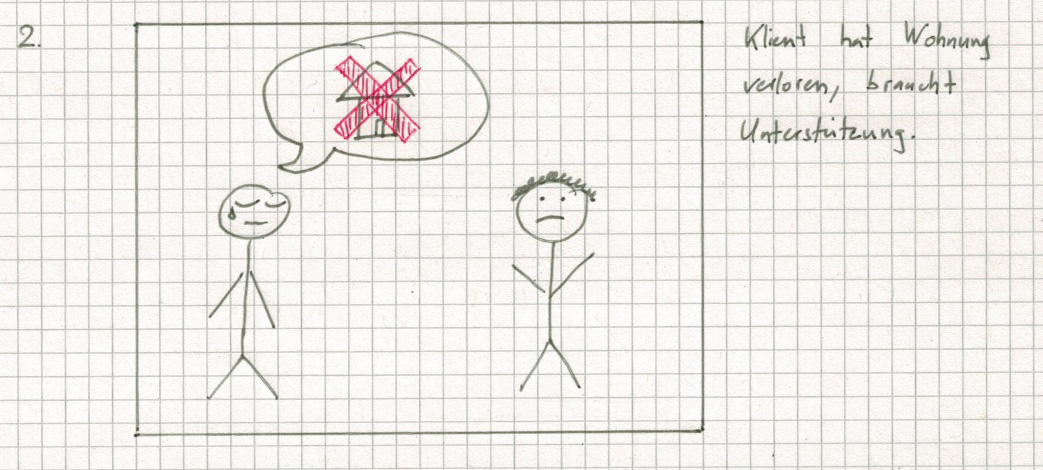 2.
Klient hat Wohnung
verloren, braucht
Unterstützung.